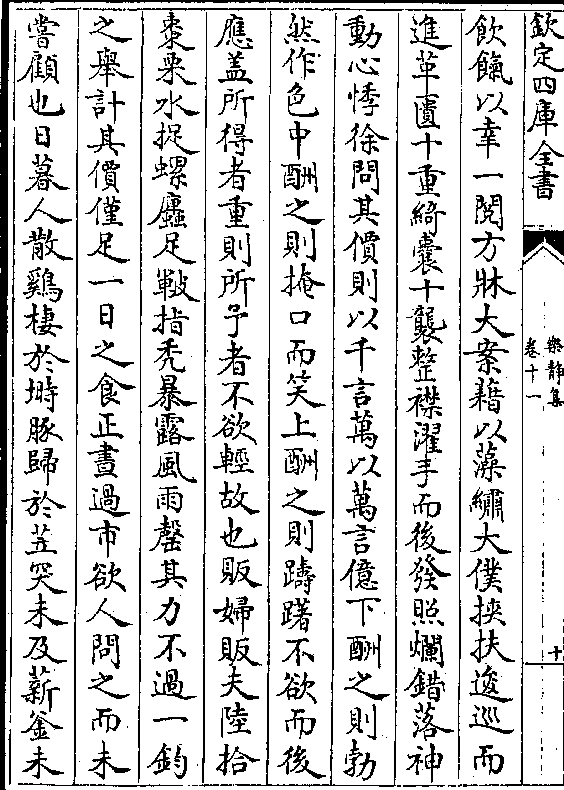 欽定四庫全書
樂靜集
卷十一
十
飲餼以幸一閱方牀大案藉以藻繡大僕挾扶逡巡而
進革匱十重綺囊十襲整襟濯手而後發照爛錯落神
動心悸徐問其價則以千言萬以萬言億下酬之則勃
然作色中酬之則掩口而笑上酬之則躊躇不欲而後
應盖所得者重則所予者不欲輕故也販婦販夫陸拾
棗栗水捉螺䗪足皸指禿暴露風雨罄其力不過一鈞
之舉計其價僅足一日之食正晝過市欲人問之而未
嘗顧也日暮人散鷄棲於塒豚歸於苙突未及薪釜未